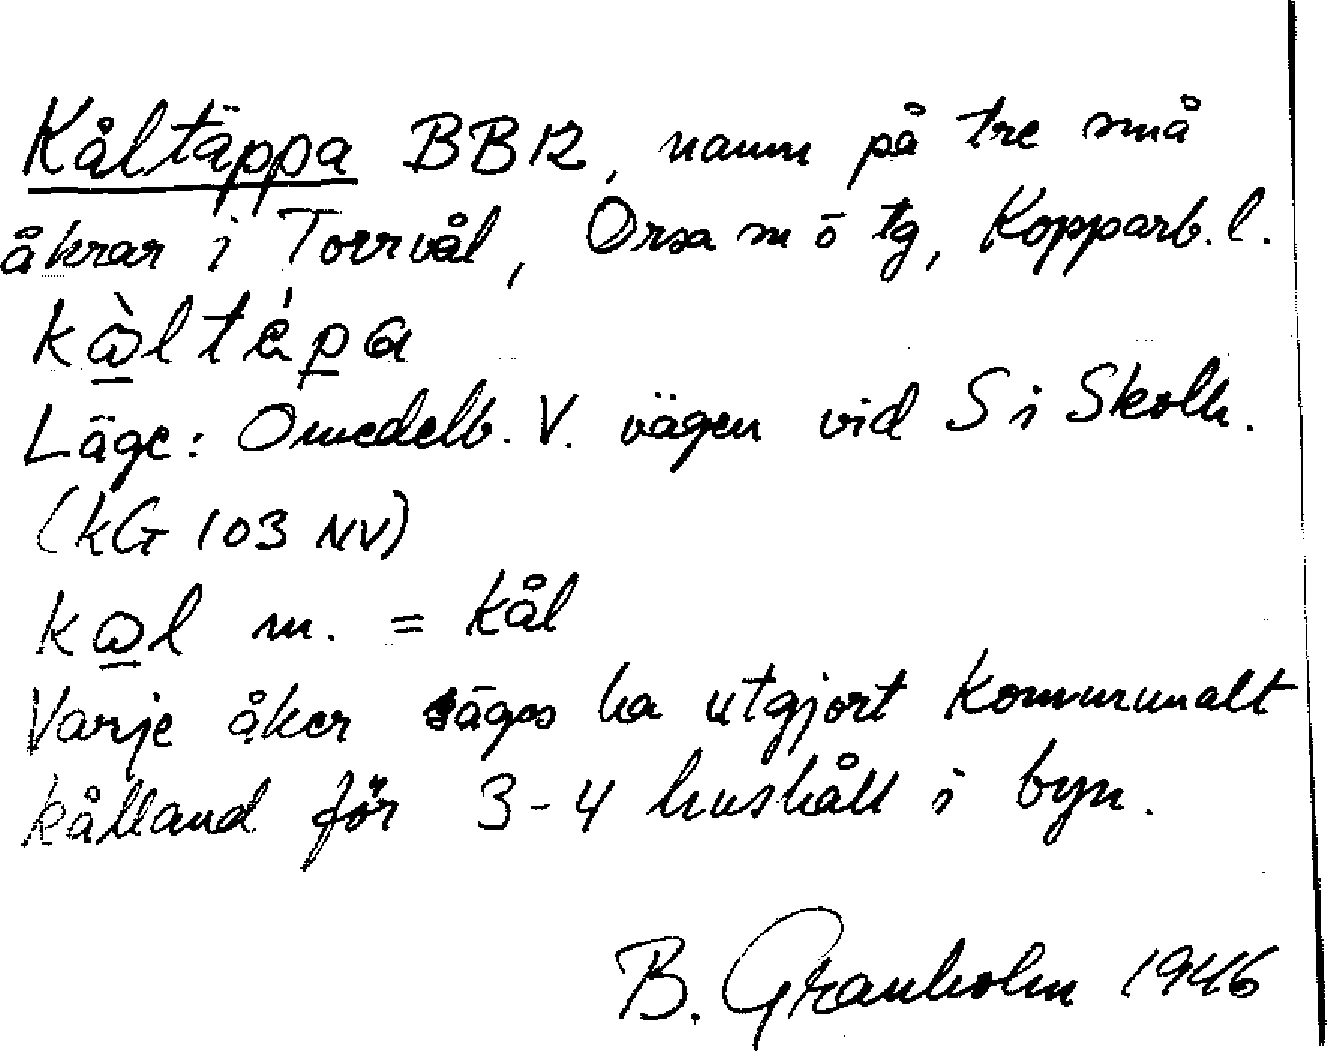 Kåltäppa BB12, namn på tre små
åkrar i Torrvål, Orsa sn ö tg, Kopparb. l.
Läge: Omedelb. V. vägen vid S i Skolh.
(kG 103 NV)
m. = kål
Varje åker säges ha utgjort kommunalt
kålland för 3-4 hushåll i byn.
B. Granholm 1946